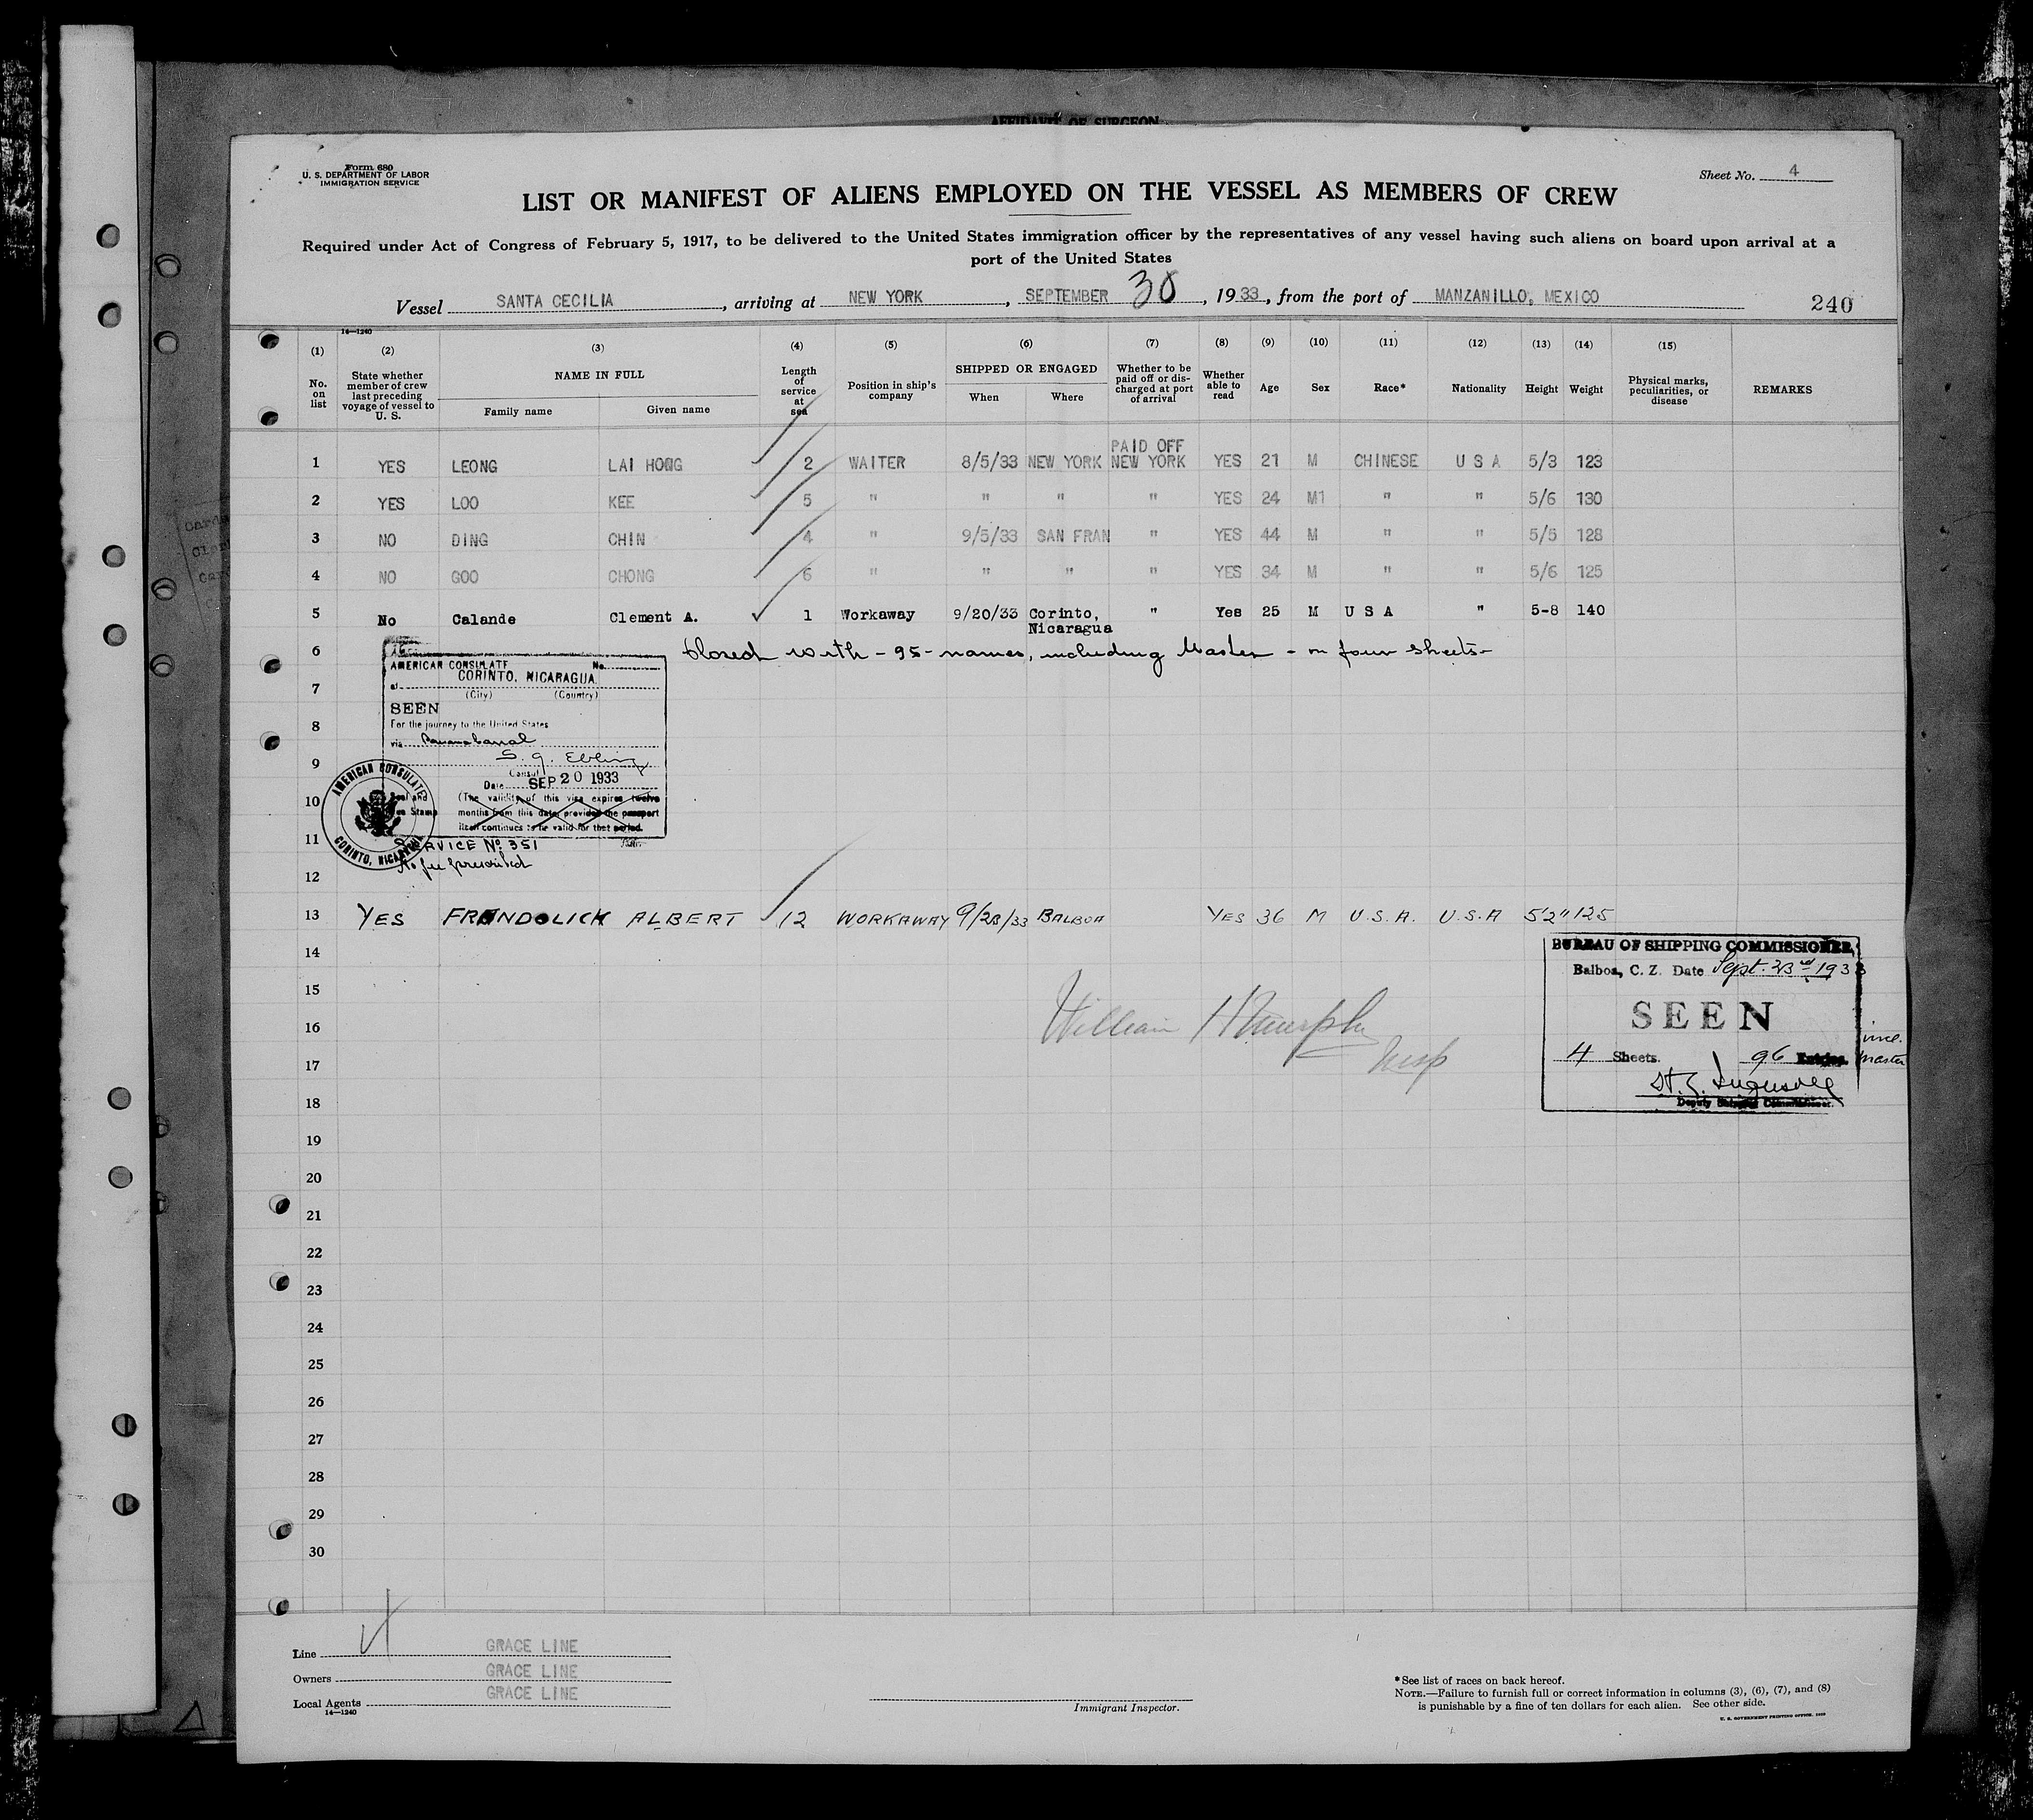 AFFIDAVIT OF SURGEON
Form 680
U. S. DEPARTMENT OF LABOR
IMMIGRATION SERVICE
Sheet No. 4
LIST OR MANIFEST OF ALIENS EMPLOYED ON THE VESSEL AS MEMBERS OF CREW
Required under Act of Congress of February 5, 1917, to be delivered to the United States immigration officer by the representatives of any vessel having such aliens on board upon arrival at a
port of the United States
Vessel SANTA CECILIA, arriving at NEW YORK, SEPTEMBER 30, 1933, from the port of MANZANILLO, MEXICO
240
14—1240
(1) (2) (3) (4) (5) (6) (7) (8) (9) (10) (11) (12) (13) (14) (15)
No. on list
State whether member of crew last preceding voyage of vessel to U. S.
NAME IN FULL
Family name
Given name
Length of service at sea
Position in ship's company
SHIPPED OR ENGAGED
When
Where
Whether to be paid off or discharged at port of arrival
Whether able to read
Age
Sex
Race*
Nationality
Height
Weight
Physical marks, peculiarities, or disease
REMARKS
1 YES LEONG LAI HONG 2 WAITER 8/5/33 NEW YORK PAID OFF NEW YORK YES 21 M CHINESE U S A 5/3 123
2 YES LOO KEE 5 " " " " YES 24 M1 " " 5/6 130
3 NO DING CHIN 4 " 9/5/33 SAN FRAN " YES 44 M " " 5/5 128
4 NO GOO CHONG 6 " " " " YES 34 M " " 5/6 125
5 No Calande Clement A. 1 Workaway 9/20/33 Corinto, Nicaragua " Yes 25 M U S A " 5-8 140
6 Closed with - 95 - names, including Master - on four sheets -
AMERICAN CONSULATE No.
at CORINTO, NICARAGUA
(City) (Country)
7
SEEN
8
For the journey to the United States
via Panama Canal
9
S. G. Ebling
Consul
Date SEP 20 1933
10
(The validity of this visa expires twelve
months from this date provided the passport
itself continues to be valid for that period.
AMERICAN CONSULATE
CORINTO, NICARAGUA
11
SERVICE No. 351
No fee prescribed
12
13 YES FRONDOLICK ALBERT 12 WORKAWAY 9/23/33 BALBOA YES 36 M U.S.A. U.S.A 5'2" 125
14
BUREAU OF SHIPPING COMMISSIONER,
Balboa, C. Z. Date Sept. 23rd 1933
15
SEEN
16
William H Murphy
Insp
17
4 Sheets. 96 Entries. incl. Master
Deputy Shipping Commissioner.
18
19
20
21
22
23
24
25
26
27
28
29
30
Line GRACE LINE
Owners GRACE LINE
Local Agents GRACE LINE
14—1240
Immigrant Inspector.
*See list of races on back hereof.
NOTE.—Failure to furnish full or correct information in columns (3), (6), (7), and (8)
is punishable by a fine of ten dollars for each alien. See other side.
U. S. GOVERNMENT PRINTING OFFICE